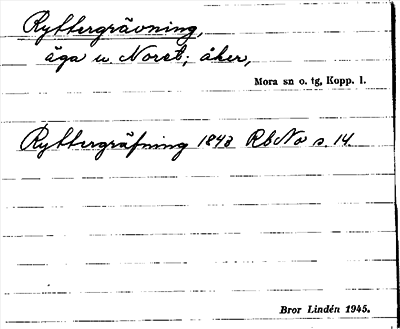 Ryttergrävning,
äga u. Noret; åker,
Mora sn o. tg, Kopp. l.
Ryttergräfning 1843 RbNo s. 14.
Bror Lindén 1945.